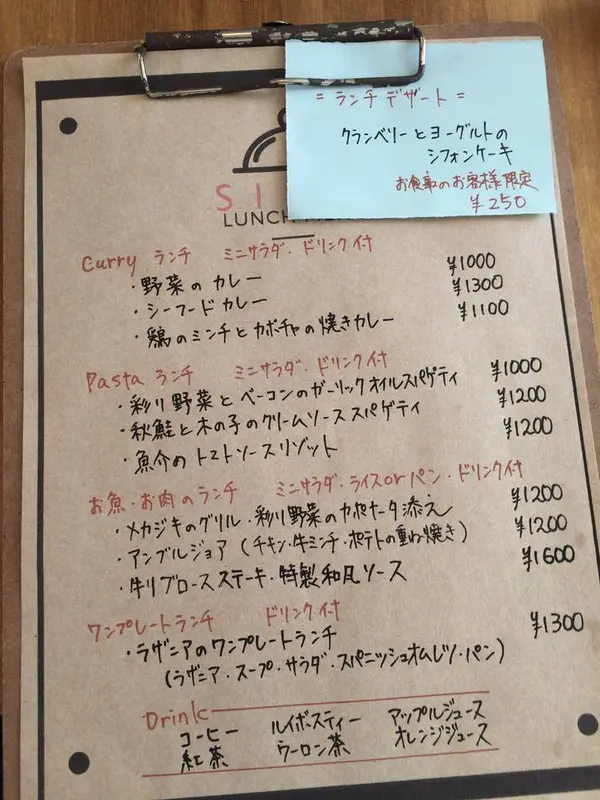 = ランチ デザート =
クランベリーとヨーグルトの
シフォンケーキ
お食事のお客様限定
¥250
LUNCH
Curry ランチ ミニサラダ・ドリンク付
・野菜のカレー ¥1000
・シーフードカレー ¥1300
・鶏のミンチとカボチャの焼きカレー ¥1100
Pasta ランチ ミニサラダ・ドリンク付
・彩り野菜とベーコンのガーリックオイルスパゲティ ¥1000
・秋鮭と木の子のクリームソーススパゲティ ¥1200
・魚介のトマトソースリゾット ¥1200
お魚・お肉のランチ ミニサラダ・ライスorパン・ドリンク付
・メカジキのグリル・彩り野菜のカポナータ添え ¥1200
・アンブルジョア (チキン・牛ミンチ・ポテトの重ね焼き) ¥1200
・牛リブロースステーキ・特製和風ソース ¥1600
ワンプレートランチ ドリンク付
・ラザニアのワンプレートランチ ¥1300
(ラザニア・スープ・サラダ・スパニッシュオムレツ・パン)
Drink
コーヒー ルイボスティー アップルジュース
紅茶 ウーロン茶 オレンジジュース